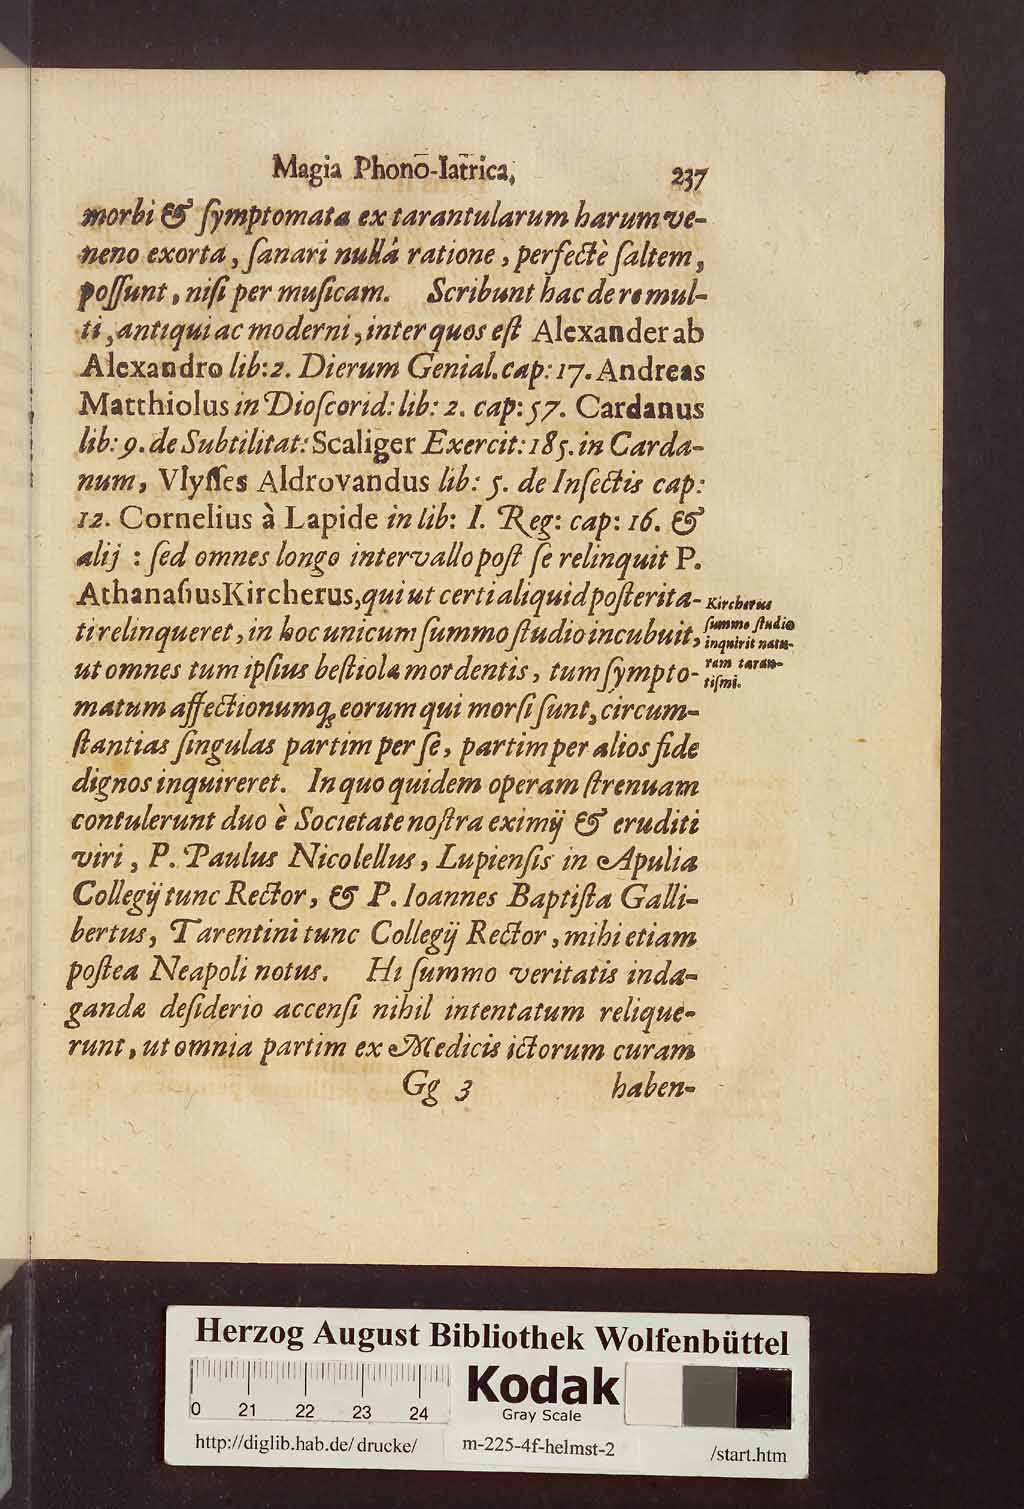 Magia Phono-Iatrica, 237
morbi & ſymptomata ex tarantularum harum ve-
neno exorta, ſanari nullâ ratione, perfectè ſaltem,
poſſunt, niſi per muſicam. Scribunt hac de re mul-
ti, antiqui ac moderni, inter quos eſt Alexander ab
Alexandro lib: 2. Dierum Genial. cap: 17. Andreas
Matthiolus in Dioſcorid: lib: 2. cap: 57. Cardanus
lib: 9. de Subtilitat: Scaliger Exercit: 185. in Carda-
num, Vlyſſes Aldrovandus lib: 5. de Inſectis cap:
12. Cornelius à Lapide in lib: I. Reg: cap: 16. &
alij : ſed omnes longo intervallo poſt ſe relinquit P.
Athanaſius Kircherus, qui ut certi aliquid poſterita-
ti relinqueret, in hoc unicum ſummo ſtudio incubuit,
ut omnes tum ipſius beſtiolæ mordentis, tum ſympto-
matum affectionumq; eorum qui morſi ſunt, circum-
ſtantias ſingulas partim per ſe, partim per alios fide
dignos inquireret. In quo quidem operam ſtrenuam
contulerunt duo è Societate noſtra eximij & eruditi
viri, P. Paulus Nicolellus, Lupienſis in Apulia
Collegij tunc Rector, & P. Ioannes Baptiſta Galli-
bertus, Tarentini tunc Collegij Rector, mihi etiam
poſtea Neapoli notus. Hi ſummo veritatis inda-
gandæ deſiderio accenſi nihil intentatum relique-
runt, ut omnia partim ex Medicis ictorum curam
Gg 3 haben-
Kircherus
ſummo ſtudio
inquirit natu-
ram taran-
tiſmi.
Herzog August Bibliothek Wolfenbüttel
0 21 22 23 24
Kodak
Gray Scale
http://diglib.hab.de/drucke/ m-225-4f-helmst-2 /start.htm